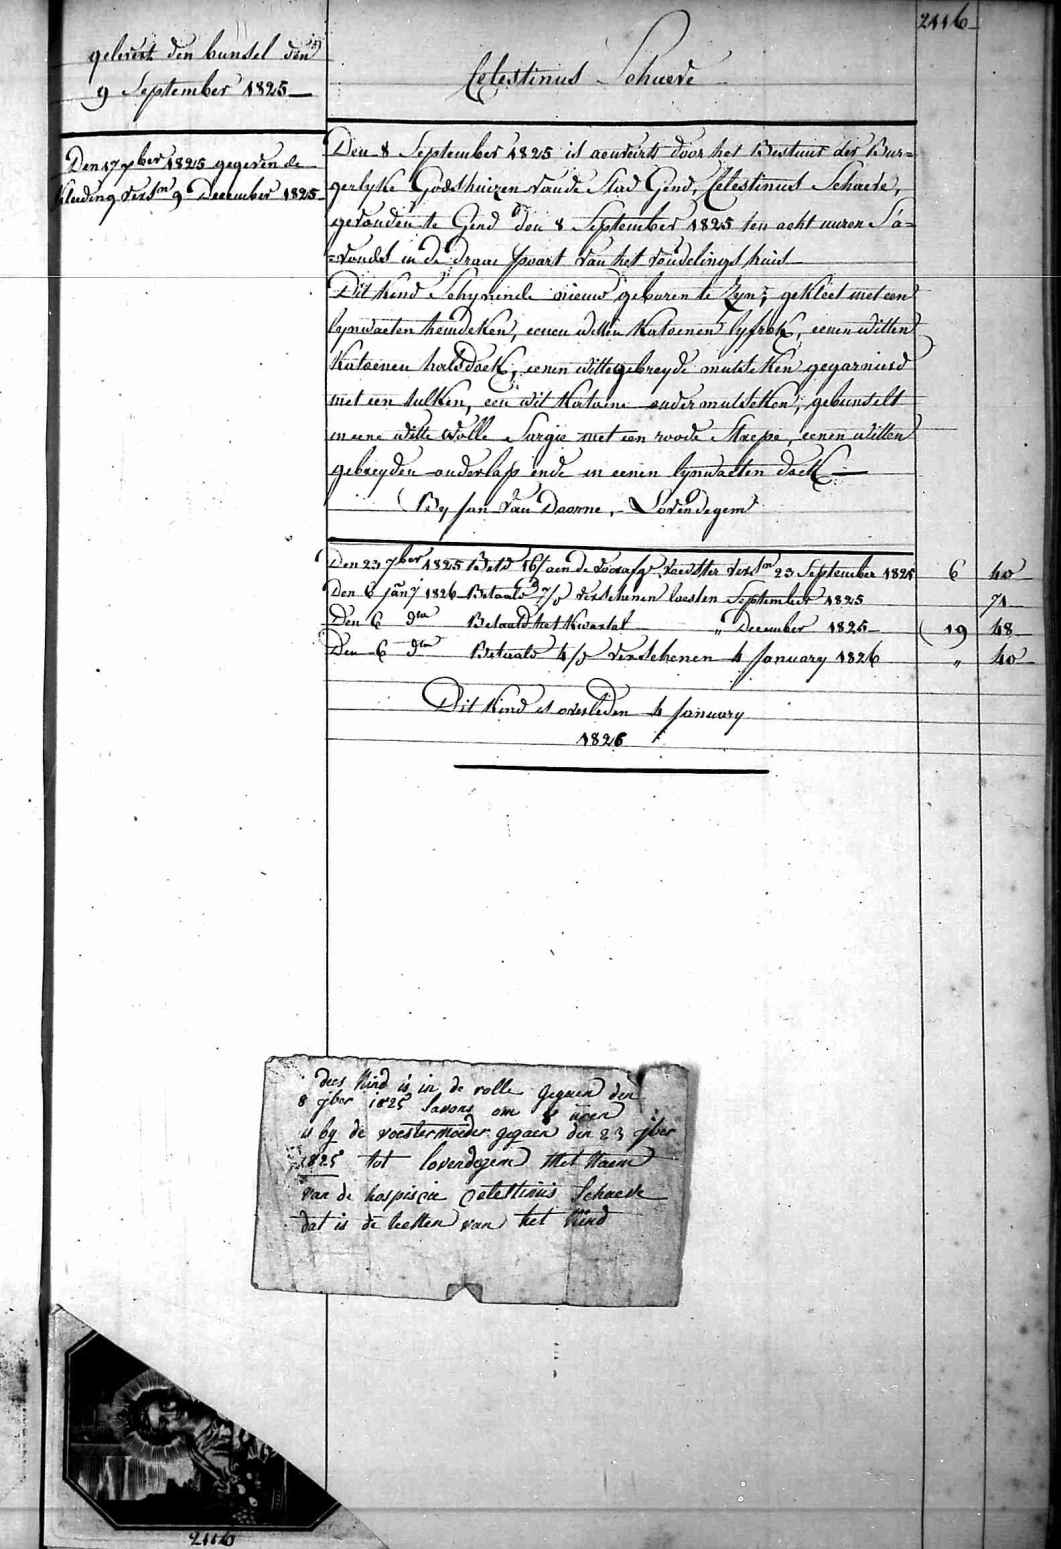 2116
gelevert den bunsel den
9 September 1825
Celestinus Schaeve
Den 17 7ber 1825 gegeven de
kleeding versn 9 December 1825
Den 8 September 1825 is aenveirt door het Bestuur der Bur=
gerlyke Godshuizen van de Stad Gend, Celestinus Schaeve,
gevonden te Gend den 8 September 1825 ten acht uuren s'a=
=vonds in de draai poort van het vondelings huis
Dit kind schynende nieuw geboren te zyn, gekleet met een
lynwaeten hemdeken, eenen witten katoenen lyfrok, eenen witten
katoenen halsdoek, eenen witte gebreyde mutseken gegarnierd
met een tulken, een wit katoene onder mutseken, gebunselt
in eene witte wolle sargie met een roode streepe, eenen witten
gebreyden onderlap ende in eenen lynwaeten doek
By Jan Van Doorne, Lovendegem
Den 23 7ber 1825 Betd 16/ aen de voorafg. voedster versn 23 September 1825 6 40
Den 6 Jany 1826 Betaald 7/d verschenen laesten September 1825 71
Den 6 dto Betaald het kwartal " December 1825 19 48
Den 6 dto Betaald 4/d verschenen 4 January 1826 " 40
Dit kind is overleden 4 January
1826
dees kind is in de rolle gegaen den
8 7ber 1825 savons om 8 uren
is by de voestermoeder gegaen den 23 7ber
1825 tot lovendegem met naem
van de hospicie Celestinus Schaeve
dat is de letten van het kind
2116